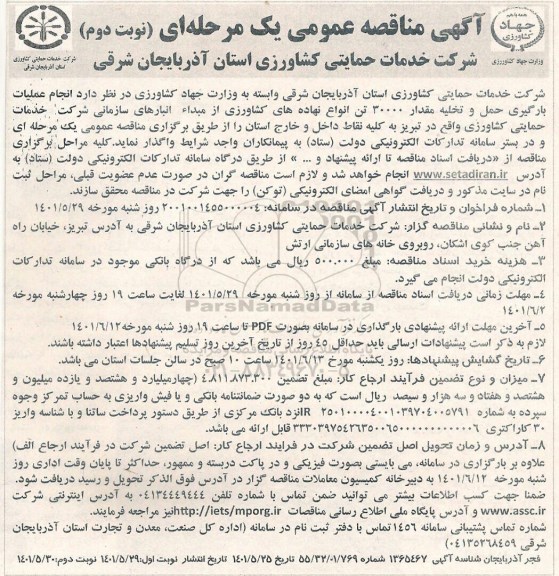 آگهی مناقصه عمومی یک مرحله‌ای (نوبت دوم)
شرکت خدمات حمایتی کشاورزی استان آذربایجان شرقی
جهاد کشاورزی
وزارت جهاد کشاورزی
شرکت خدمات حمایتی کشاورزی
استان آذربایجان شرقی
شرکت خدمات حمایتی کشاورزی استان آذربایجان شرقی وابسته به وزارت جهاد کشاورزی در نظر دارد انجام عملیات
بارگیری حمل و تخلیه مقدار ۳۰۰۰۰ تن انواع نهاده های کشاورزی از مبداء انبارهای سازمانی شرکت خدمات
حمایتی کشاورزی واقع در تبریز به کلیه نقاط داخل و خارج استان را از طریق برگزاری مناقصه عمومی یک مرحله ای
و در بستر سامانه تدارکات الکترونیکی دولت (ستاد) به پیمانکاران واجد شرایط واگذار نماید.کلیه مراحل برگزاری
مناقصه از «دریافت اسناد مناقصه تا ارائه پیشنهاد و ... » از طریق درگاه سامانه تدارکات الکترونیکی دولت (ستاد) به
آدرس www.setadiran.ir انجام خواهد شد و لازم است مناقصه گران در صورت عدم عضویت قبلی، مراحل ثبت
نام در سایت مذکور و دریافت گواهی امضای الکترونیکی (توکن) را جهت شرکت در مناقصه محقق سازند.
۱ـ شماره فراخوان و تاریخ انتشار آگهی مناقصه در سامانه: ۲۰۰۱۰۰۱۴۵۵۰۰۰۰۰۴ روز شنبه مورخه ۱۴۰۱/۵/۲۹
۲ـ نام و نشانی مناقصه گزار: شرکت خدمات حمایتی کشاورزی استان آذربایجان شرقی به آدرس تبریز، خیابان راه
آهن جنب کوی اشکان، روبروی خانه های سازمانی ارتش
۳ـ هزینه خرید اسناد مناقصه: مبلغ ۵۰۰.۰۰۰ ریال می باشد که از درگاه بانکی موجود در سامانه تدارکات
الکترونیکی دولت انجام می گیرد.
۴ـ مهلت زمانی دریافت اسناد مناقصه از سامانه از روز شنبه مورخه ۱۴۰۱/۵/۲۹ لغایت ساعت ۱۹ روز چهارشنبه مورخه
۱۴۰۱/۶/۲
۵ـ آخرین مهلت ارائه پیشنهادی بارگذاری در سامانه بصورت PDF تا ساعت ۱۹ روز شنبه مورخه ۱۴۰۱/۶/۱۲
لازم به ذکر است پیشنهادات ارسالی باید حداقل ۴۵ روز از تاریخ آخرین روز تسلیم پیشنهادها اعتبار داشته باشند.
۶ـ تاریخ گشایش پیشنهادها: روز یکشنبه مورخ ۱۴۰۱/۶/۱۳ ساعت ۱۰ صبح در سالن جلسات استان می باشد.
۷ـ میزان و نوع تضمین فرآیند ارجاع کار: مبلغ تضمین ۴.۸۱۱.۸۷۳.۳۰۰ (چهارمیلیارد و هشتصد و یازده میلیون و
هشتصد و هفتاد و سه هزار و سیصد ریال است که به دو صورت ضمانتنامه بانکی و یا فیش واریزی به حساب تمرکز وجوه
سپرده به شماره IR نزد بانک مرکزی از طریق دستور پرداخت ساتنا و با شناسه واریز
۳۰ کاراکتری قابل ارائه می باشد.
۸ـ آدرس و زمان تحویل اصل تضمین شرکت در فرآیند ارجاع کار: اصل تضمین شرکت در فرآیند ارجاع کار (پاکت الف)
علاوه بر بارگذاری در سامانه، می بایستی بصورت فیزیکی و در پاکت دربسته و ممهور، حداکثر تا پایان وقت اداری روز
شنبه مورخه ۱۴۰۱/۶/۱۲ به دبیرخانه کمیسیون معاملات مناقصه گزار در آدرس فوق الذکر تحویل و رسید دریافت شود.
ضمنا جهت کسب اطلاعات بیشتر می توانید ضمن تماس با شماره تلفن ۰۴۱۳۴۴۴۹۴۴۴ به آدرس اینترنتی شرکت
www.assc.ir و آدرس پایگاه ملی اطلاع رسانی مناقصات http://iets/mporg.ir نیز مراجعه فرمایند.
شماره تماس پشتیبانی سامانه ۱۴۵۶ تماس با دفتر ثبت نام در سامانه (اداره کل صنعت، معدن و تجارت استان آذربایجان
شرقی (۰۴۱۳۵۲۶۸۴۵۹
فجر آذربایجان شناسه آگهی ۱۳۶۵۴۶۷ شماره ۵۵/۳۲/۰۱/۷۶۹ تاریخ ۱۴۰۱/۵/۲۵ تاریخ انتشار نوبت اول: ۱۴۰۱/۵/۲۹ نوبت دوم: ۱۴۰۱/۵/۳۰
ParsNamadData